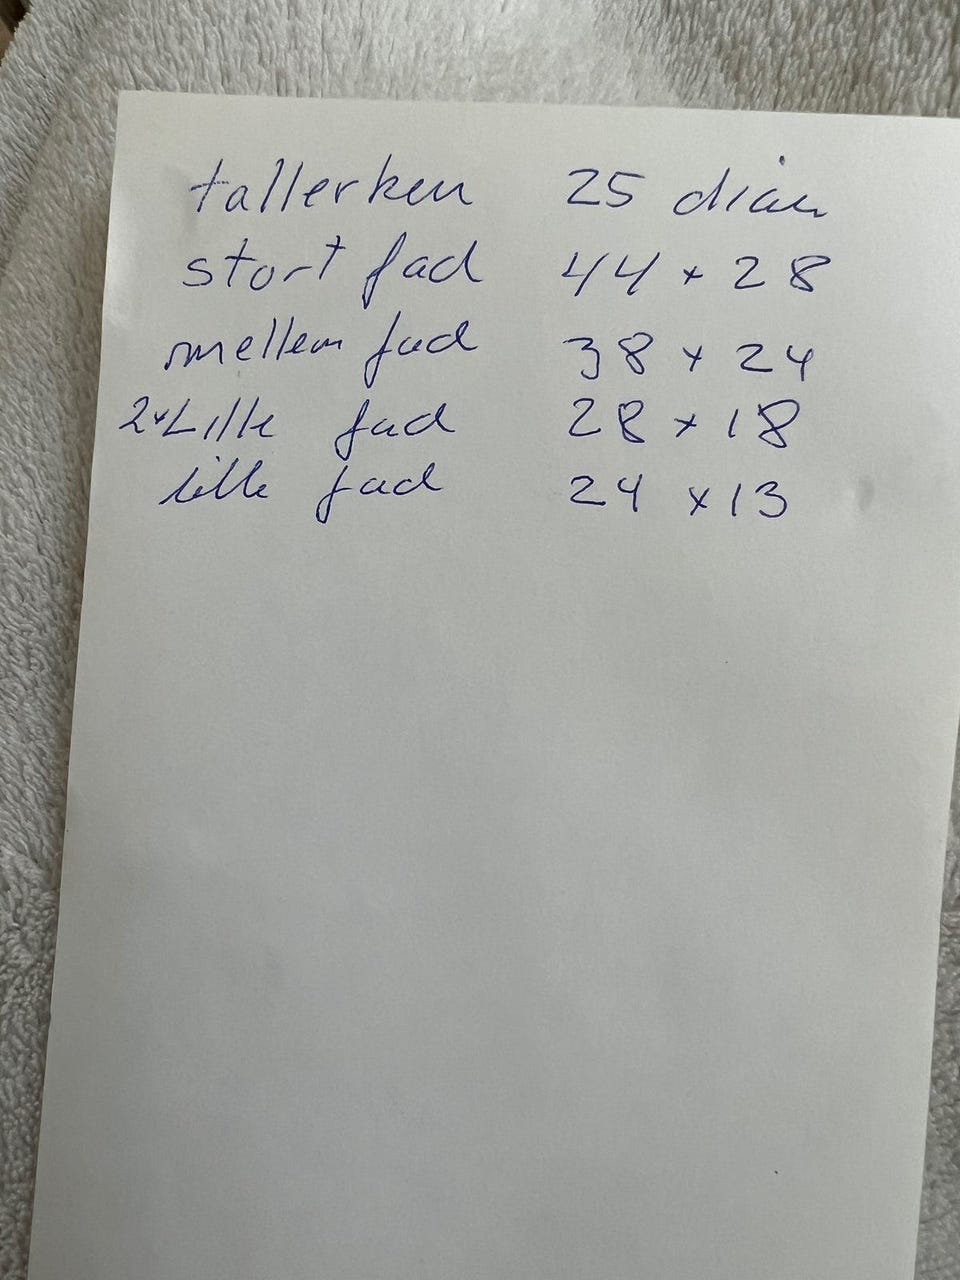 tallerken 25 diam
stort fad 44 x 28
mellem fad 38 x 24
2xLille fad 28 x 18
lille fad 24 x 13